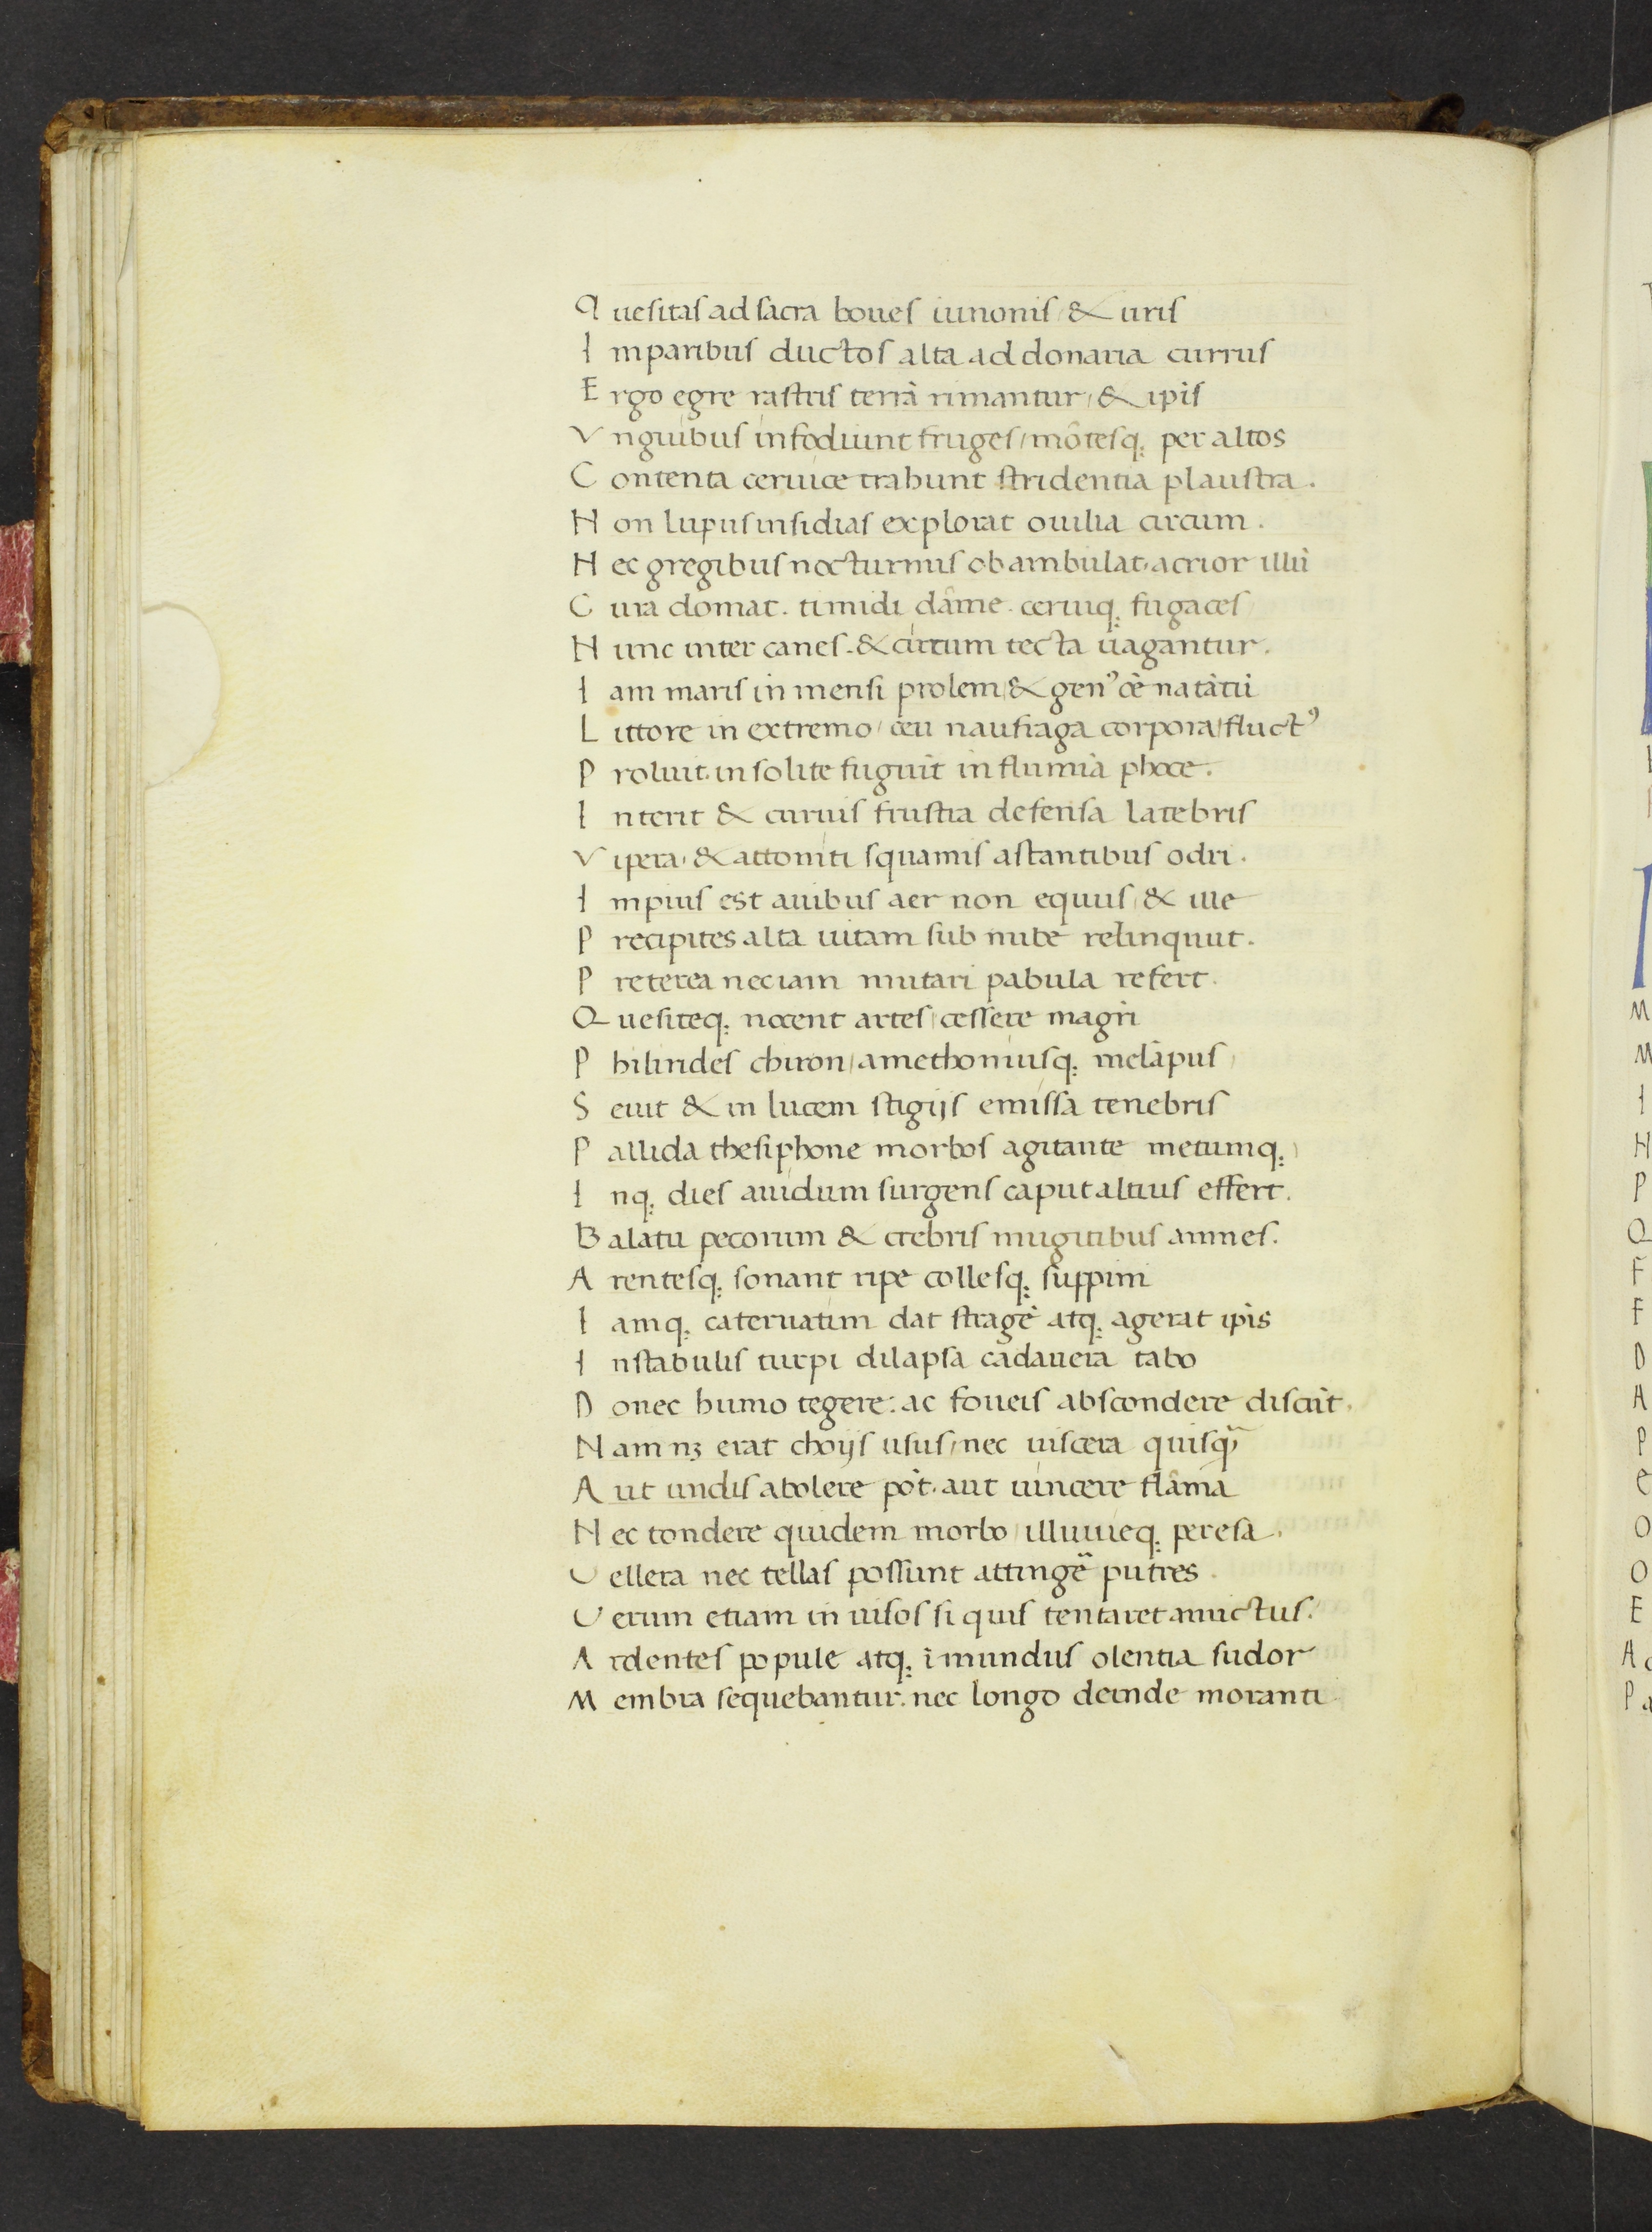 Quesitas ad sacra boues iunonis / & uris
Imparibus ductos alta ad donaria currus
Ergo egre rastris terrã rimantur / & ip̃is
Vnguibus infodiunt fruges / mõtesq; per altos
Contenta ceruice trahunt stridentia plaustra.
Non lupus insidias explorat ouilia circum.
Nec gregibus nocturnus obambulat. acrior illũ
Cura domat. timidi dãme. ceruiq; fugaces
Nunc inter canes. & circum tecta uagantur.
Iam maris in mensi prolem / & genꝰ õe natãtũ
Littore in extremo / ceu naufraga corpora / fluctꝰ
Proluit. insolite fugiũt in flumĩa phoce.
Interit & curuis frustra defensa latebris
Vipera. & attoniti squamis astantibus odri.
Impius est auibus aer non equus / & ille
Precipites alta uitam sub nube relinquũt.
Preterea nec iam mutari pabula refert.
Quesiteq; nocent artes / cessere magr̃i
Philirides chiron / amethoniusq; melãpus /
Seuit & in lucem stigijs emissa tenebris
Pallida thesiphone morbos agitante metumq; /
Inq; dies auidum surgens caput altius effert.
Balatu pecorum & crebris mugitibus amnes.
Arentesq; sonant ripe collesq; suppini
Iamq; cateruatim dat stragẽ atq; agerat ip̃is
In stabulis turpi dilapsa cadauera tabo
Donec humo tegere: ac foueis abscondere discũt.
Nam nꝫ erat chorijs usus / nec uiscera quisq̃
Aut undis abolere põt. aut uincere flãma
Nec tondere quidem morbo / illuuieq; peresa.
Vellera nec tellas possunt attingẽ putres.
Verum etiam in uisos si quis tentaret amictus.
Ardentes popule atq; ĩmundus olentia sudor
Membra sequebantur. nec longo deinde moranti